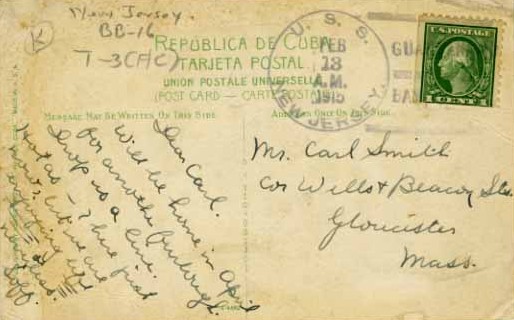 New Jersey.
BB-16
T-3(A/C)
K
REPÚBLICA DE CUBA
TARJETA POSTAL
UNION POSTALE UNIVERSELLE
(POST CARD — CARTE POSTALE)
U. S. S.
FEB
13
A.M.
1915
NEW JERSEY.
U.S. POSTAGE
1 CENT 1
MESSAGE MAY BE WRITTEN ON THIS SIDE
ADDRESS ONLY ON THIS SIDE.
Dear Carl.
Will be home in April
for another furlough.
Drop us a line.
Hot as — I have just
now. but we are
enjoying life
Mr. Carl Smith
Cor Wells & Beacon Sts.
Gloucester
Mass.